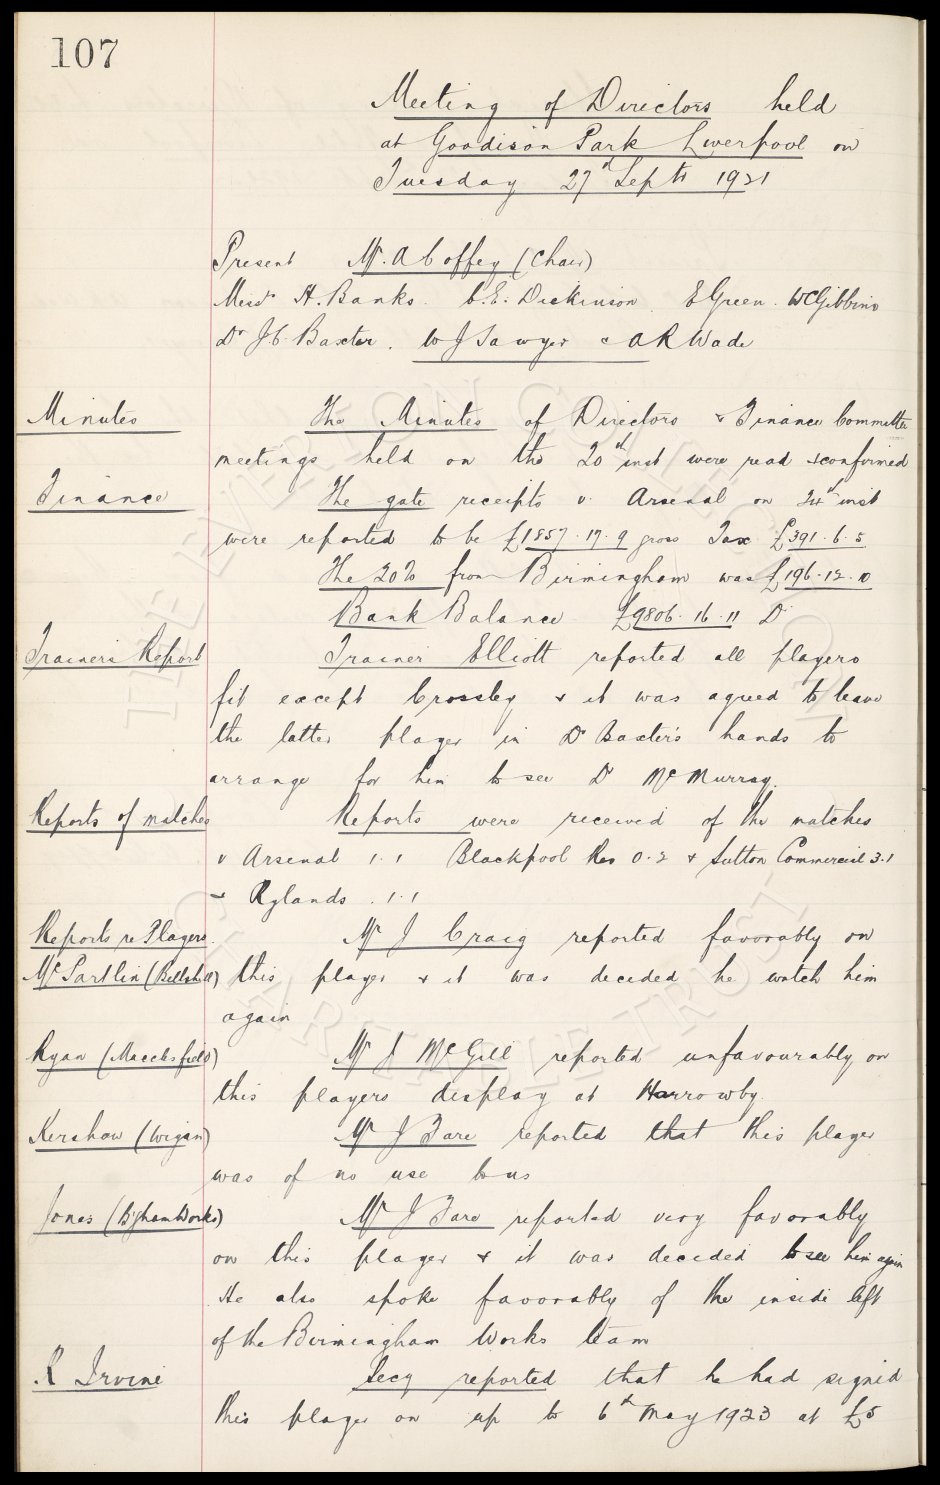 107
Meeting of Directors held
at Goodison Park Liverpool on
Tuesday 27th Septr 1921
Present Mr. A Coffey (Chair)
Messrs H. Banks. C.E. Dickinson E Green. WC Gibbins
Dr J.C. Baxter. W J Sawyer & A R Wade
Minutes The Minutes of Directors & Finance Committee
meetings held on the 20th inst were read & confirmed
Finance The gate receipts v. Arsenal on 24th inst
were reported to be £1857.17.9 gross Tax £391.6.5
The 20% from Birmingham was £196.12.10
Bank Balance £9806.16.11 Dr
Trainers Report Trainer Elliott reported all players
fit except Crossley & it was agreed to leave
the latter player in Dr Baxter's hands to
arrange for him to see Dr McMurray.
Reports of matches Reports were received of the matches
v Arsenal 1.1 Blackpool Res 0.2 & Sutton Commercial 3.1
& Rylands . 1.1
Reports re Players. Mr J Craig reported favorably on
McPartlin (Bellshill) this player & it was decided he watch him
again
Ryan (Macclesfield) Mr J McGill reported unfavourably on
this players display at Harrowby.
Kershaw (Wigan) Mr J Fare reported that this player
was of no use to us
Jones (B'gham Works) Mr J Fare reported very favorably
on this player & it was decided to see him again
He also spoke favorably of the inside left
of the Birmingham Works team
R Irvine Secy reported that he had signed
this player on up to 6th May 1923 at £5
THE EVERTON COLLECTION
CHARITABLE TRUST